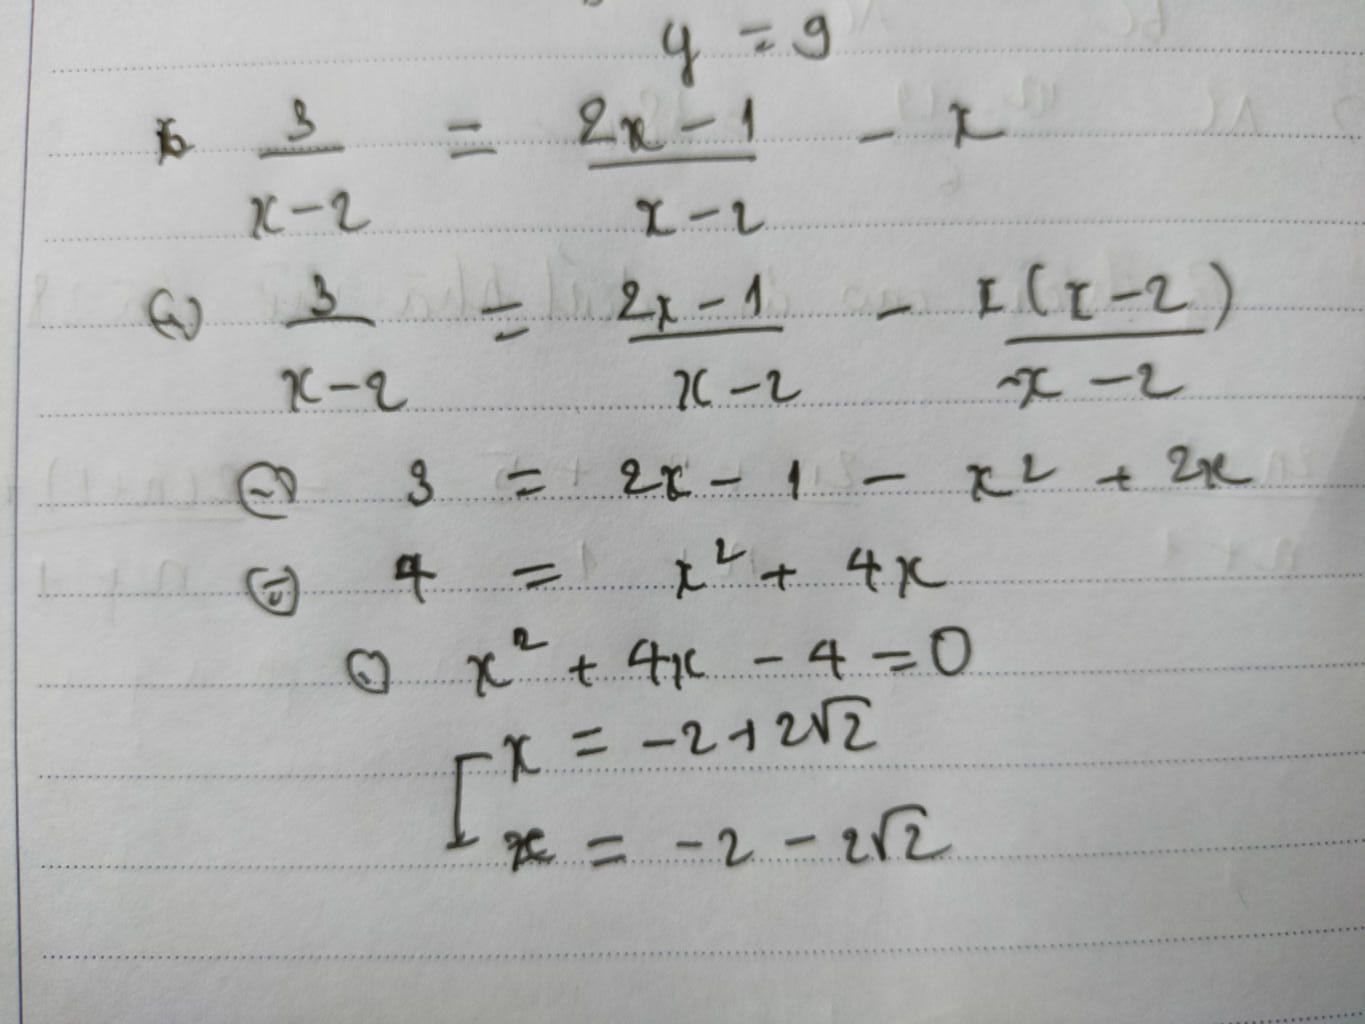 y = 9
b 3/(x-2) = (2x-1)/(x-2) - x
⇔ 3/(x-2) = (2x-1)/(x-2) - x(x-2)/(x-2)
⇔ 3 = 2x - 1 - x² + 2x
⇔ 4 = x² + 4x
⇔ x² + 4x - 4 = 0
[ x = -2 + 2√2
x = -2 - 2√2